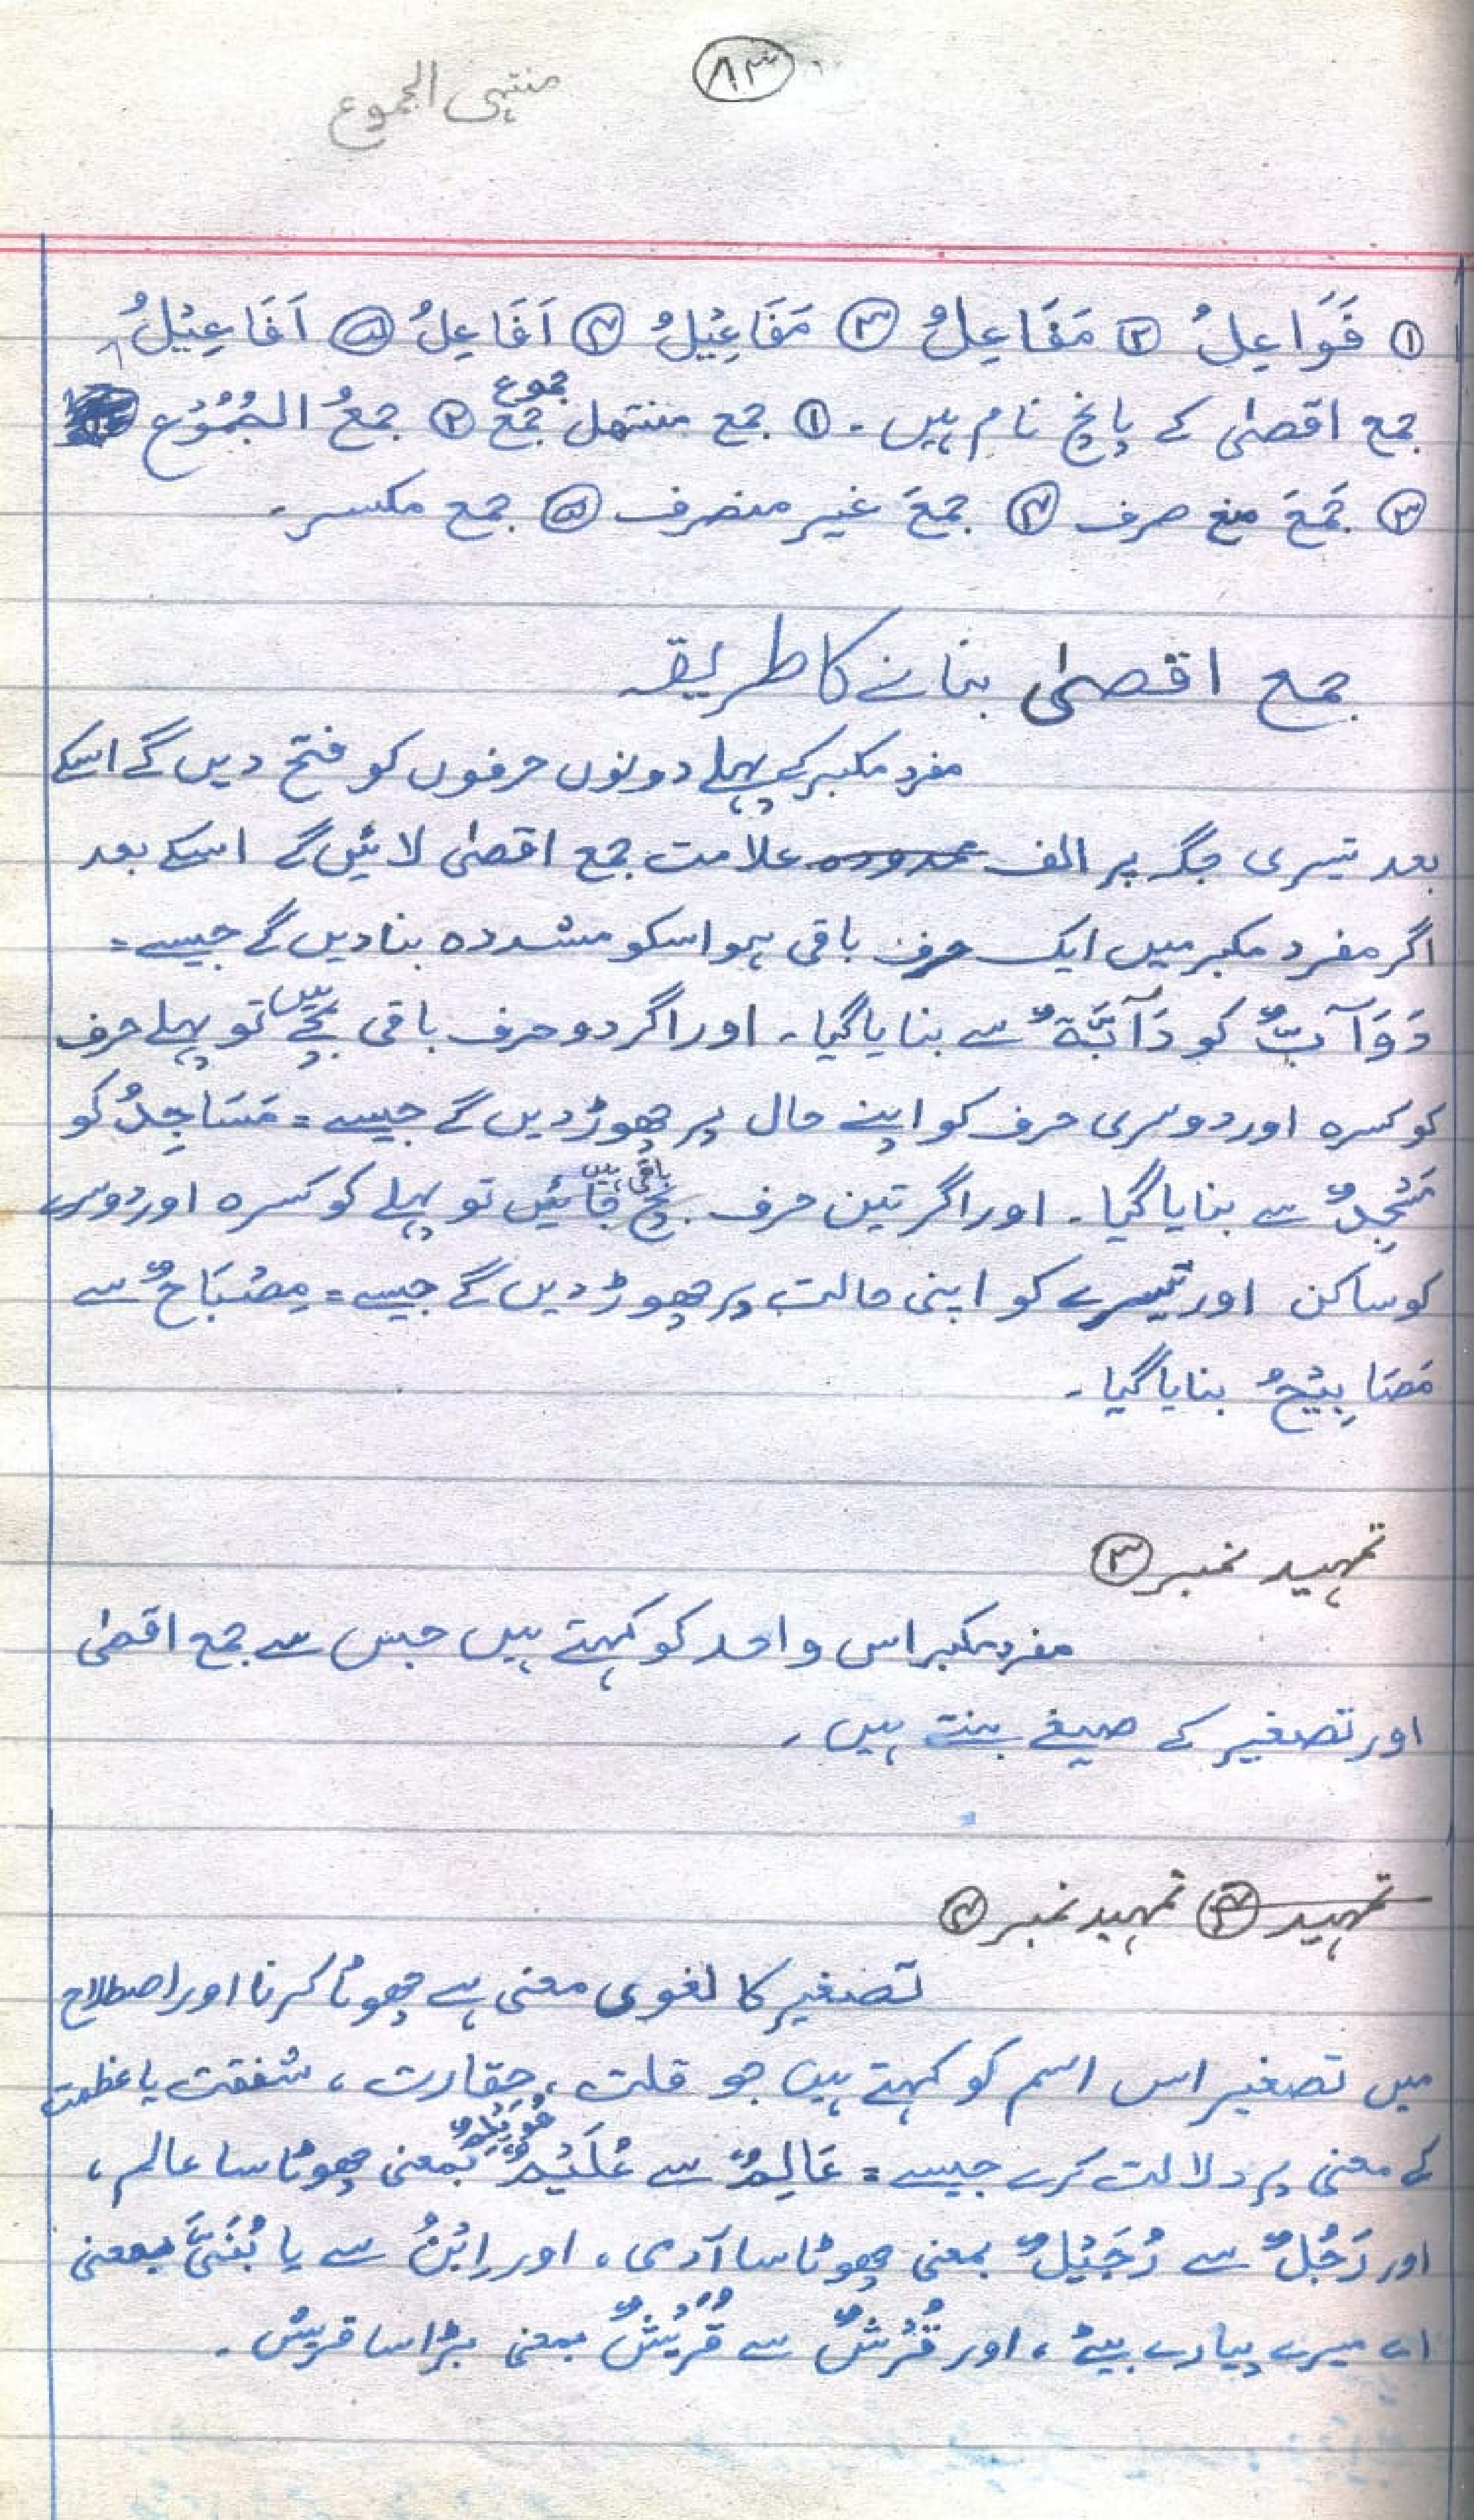 ۸۳
منتہی الجموع
① فَوَاعِلُ ② مَفَاعِلُ ③ مَفَاعِیْلُ ④ اَفَاعِلُ ⑤ اَفَاعِیْلُ
جمع اقصٰی کے پانچ نام ہیں۔ ① جمع منتھل جمع جموع ② جمعُ الجُمُوْع
③ جمعَ منع صرف ④ جمعَ غیر منصرف ⑤ جمع مکسر۔
جمع اقصٰی بنانے کا طریقہ
مفرد مکبر کے پہلے دونوں حرفوں کو فتح دیں گے اسکے
بعد تیسری جگہ پر الف ممدودہ علامت جمع اقصٰی لائیں گے اسکے بعد
اگر مفرد مکبر میں ایک حرف باقی ہو اسکو مشددہ بنا دیں گے جیسے =
دَوَآبٌّ کو دَآبَّۃٌ سے بنایا گیا۔ اور اگر دو حرف باقی بچے ہیں تو پہلے حرف
کو کسرہ اور دوسری حرف کو اپنے حال پر چھوڑ دیں گے جیسے = مَسَاجِدُ کو
مَسْجِدٌ سے بنایا گیا۔ اور اگر تین حرف بچ جائیں باقی ہیں تو پہلے کو کسرہ اور دوسرے
کو ساکن اور تیسرے کو اپنی حالت پر چھوڑ دیں گے جیسے = مِصْبَاحٌ سے
مَصَابِیْحُ بنایا گیا۔
تمہید نمبر ③
مفرد مکبر اس واحد کو کہتے ہیں جس سے جمع اقصٰی
اور تصغیر کے صیغے بنتے ہیں۔
تمہید ④ تمہید نمبر ④
تصغیر کا لغوی معنی ہے چھوٹا کرنا اور اصطلاح
میں تصغیر اس اسم کو کہتے ہیں جو قلت، حقارت، شفقت یا عظمت
کے معنی پر دلالت کرے جیسے = عَالِمٌ سے عُلَیْمٌ بمعنی چھوٹا سا عالم،
اور رَجُلٌ سے رُجَیْلٌ بمعنی چھوٹا سا آدمی، اور اِبْنٌ سے یا بُنَیَّ بمعنی
اے میرے پیارے بیٹے، اور قُرْشٌ سے قُرَیْشٌ بمعنی بڑا سا قریش۔